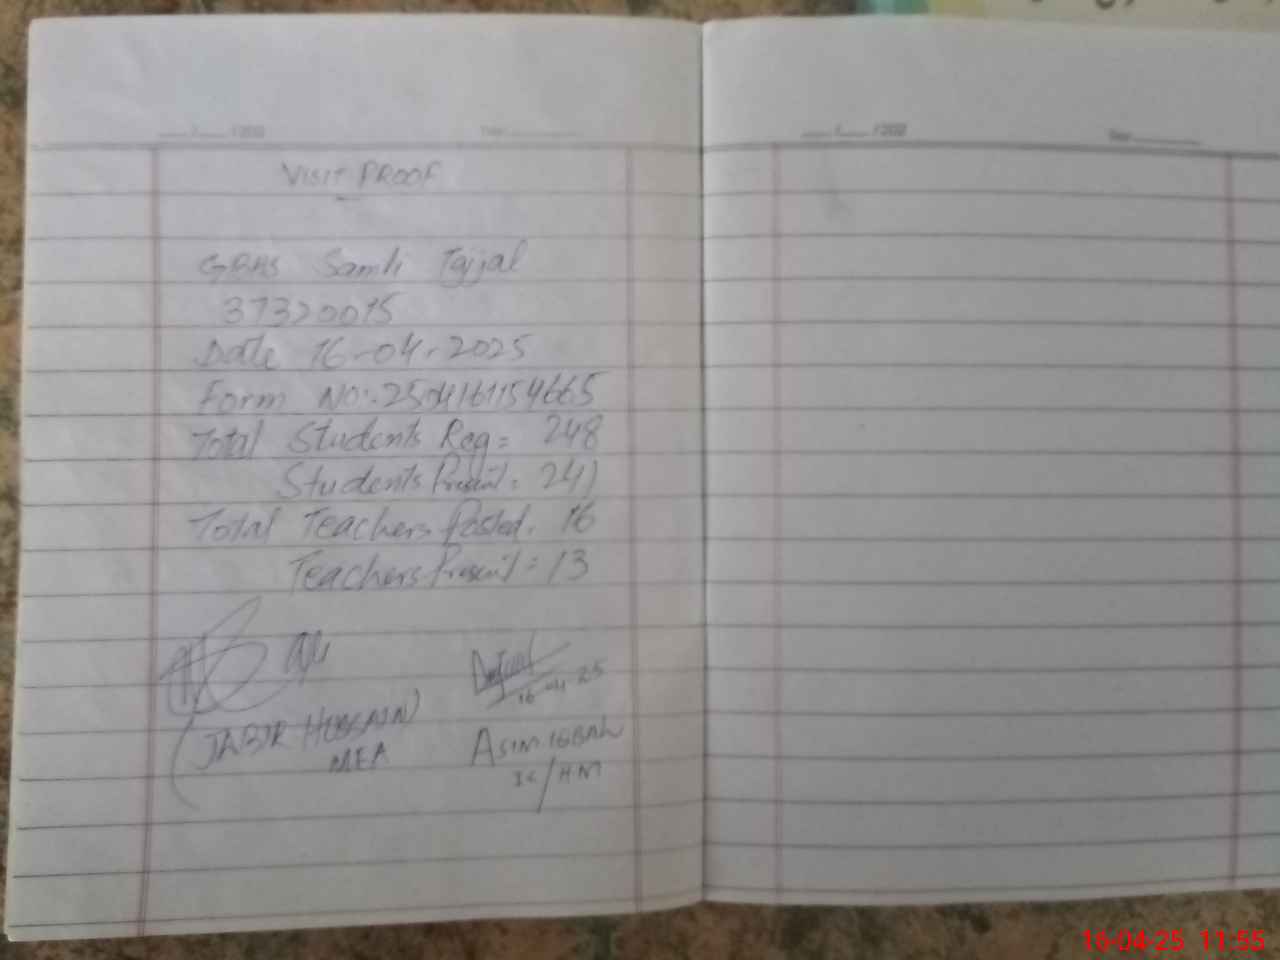 VISIT PROOF
GBHS Samli Tajjal
37320015
Date 16-04-2025
Form No:-2504161154665
Total Students Reg = 248
Students Present = 241
Total Teachers Posted. 16
Teachers Present = 13
16-04-25
(JABIR HUSSAIN)
MEA
ASIM IQBAL
IC/HM
16-04-25 11:55